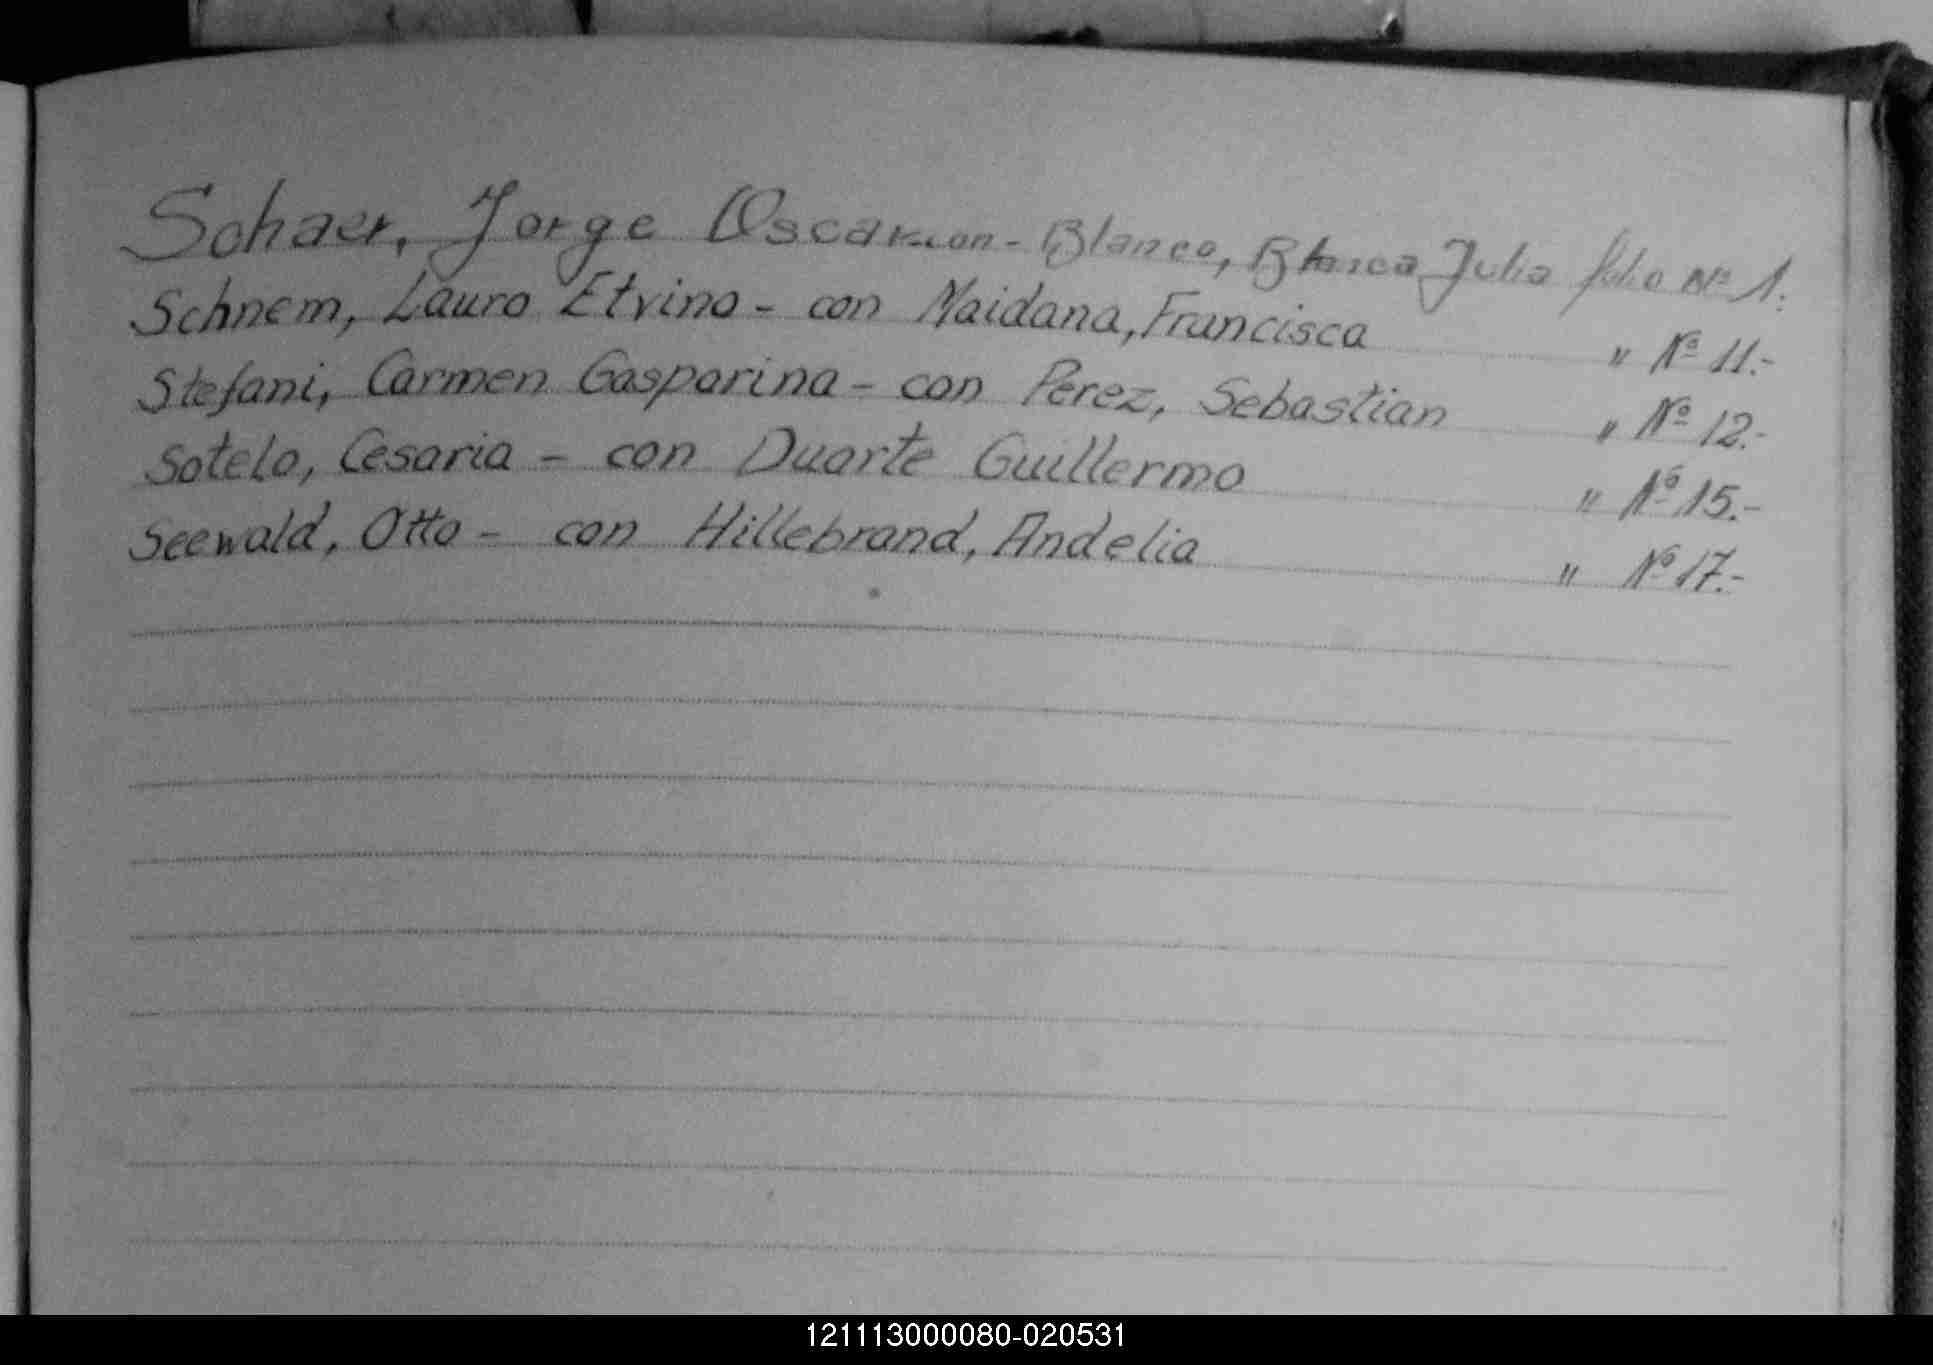 Schaer, Jorge Oscar con - Blanco, Blanca Julia folio Nº 1.
Schnem, Lauro Etvino - con Maidana, Francisca " Nº 11.-
Stefani, Carmen Gasparina - con Perez, Sebastian " Nº 12.-
Sotelo, Cesaria - con Duarte Guillermo " Nº 15.-
Seewald, Otto - con Hillebrand, Andelia " Nº 17.-
121113000080-020531